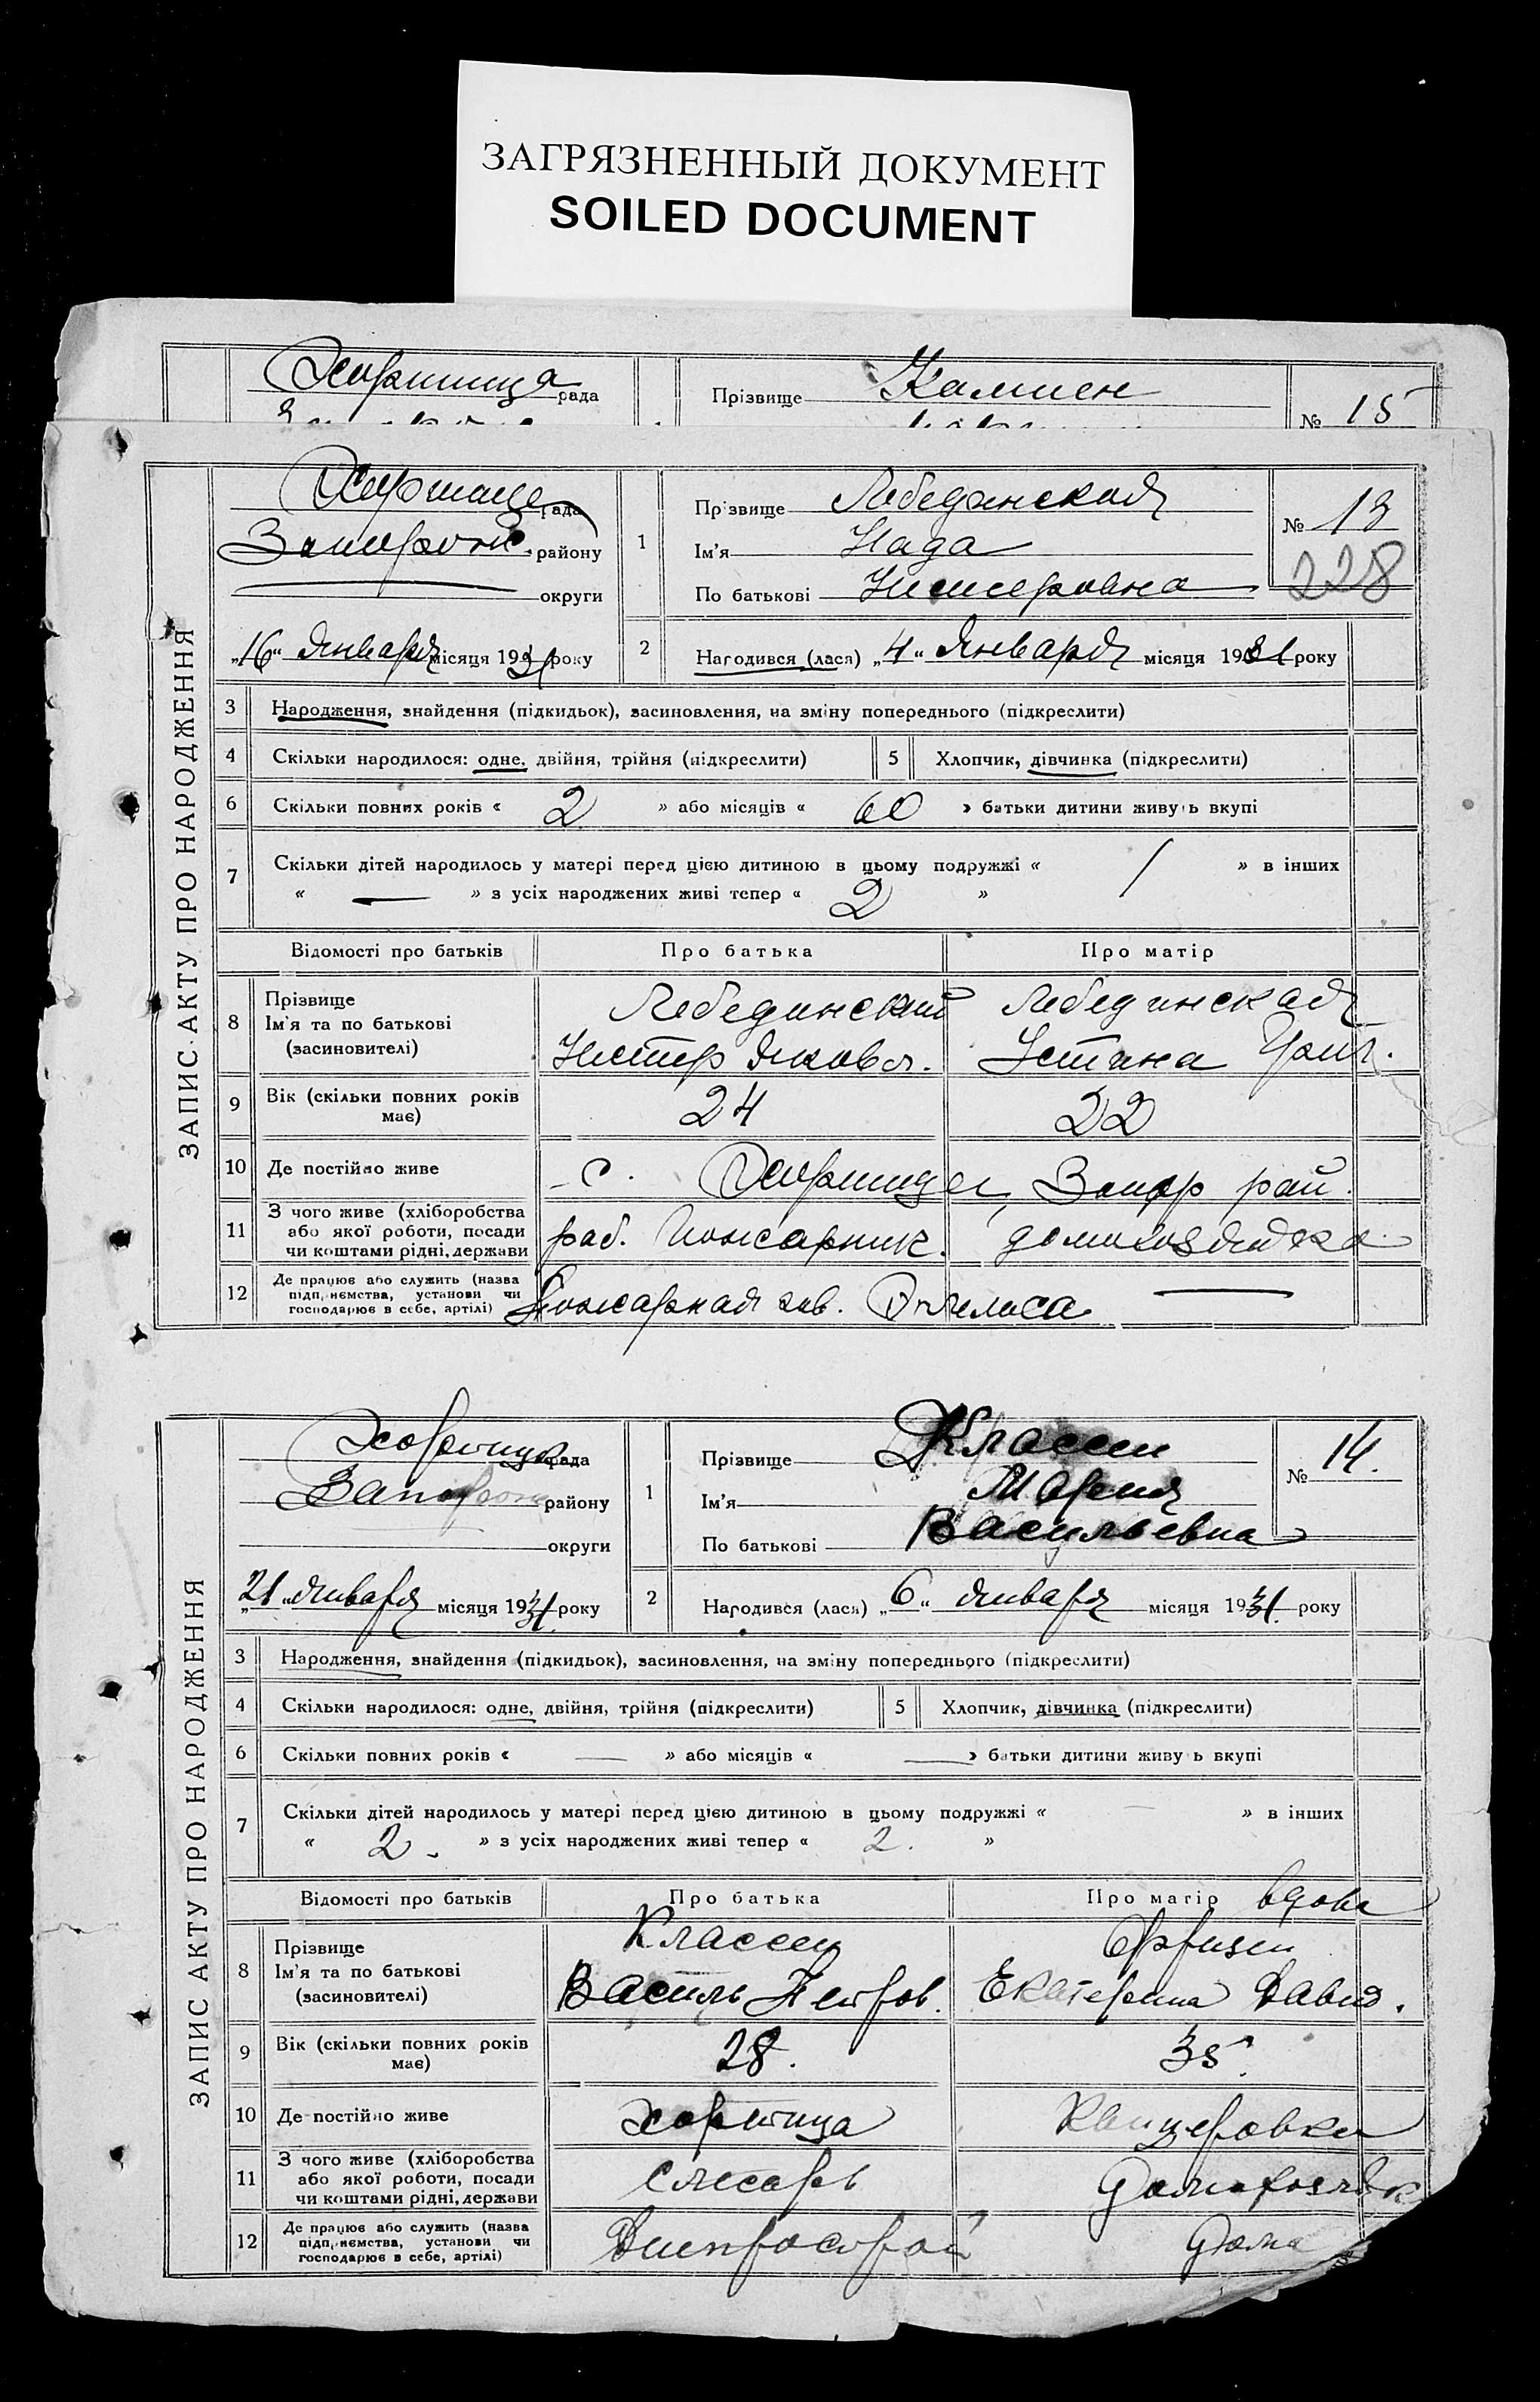 ЗАГРЯЗНЕННЫЙ ДОКУМЕНТ
SOILED DOCUMENT
Хортица рада
Прізвище
№ 15
ЗАПИС АКТУ ПРО НАРОДЖЕННЯ
рада
Запорож. району
округи
„16“ января місяця 1931 року
1
Прізвище Лебединская
Ім'я Нада
По батькові
№ 13
228
2
Народився (лася) „4“ января місяця 1931 року
3 Народження, знайдення (підкидьок), засиновлення, на зміну попереднього (підкреслити)
4 Скільки народилося: одне, двійня, трійня (підкреслити) 5 Хлопчик, дівчинка (підкреслити)
6 Скільки повних років « 2 » або місяців « » батьки дитини живуть вкупі
7 Скільки дітей народилось у матері перед цією дитиною в цьому подружжі « 1 » в інших
« — » з усіх народжених живі тепер « 2 »
Відомості про батьків Про батька Про матір
8 Прізвище
Ім'я та по батькові
(засиновителі)
Лебединский
Нестер Яковл.
Лебединская
Устина Григ.
9 Вік (скільки повних років має) 24 22
10 Де постійно живе с. Хортица, Запор рай.
11 З чого живе (хліборобства
або якої роботи, посади
чи коштами рідні, держави
раб. Пожарник. домохозяйка
12 Де працює або служить (назва
підприємства, установи чи
господарює в себе, артілі)
Пожарная —
ЗАПИС АКТУ ПРО НАРОДЖЕННЯ
рада
району
округи
„21“ января місяця 1931 року
1
Прізвище Классен
Ім'я Мария
По батькові Васильевна
№ 14.
2
Народився (лася) „6“ января місяця 1931. року
3 Народження, знайдення (підкидьок), засиновлення, на зміну попереднього (підкреслити)
4 Скільки народилося: одне, двійня, трійня (підкреслити) 5 Хлопчик, дівчинка (підкреслити)
6 Скільки повних років « — » або місяців « — » батьки дитини живуть вкупі
7 Скільки дітей народилось у матері перед цією дитиною в цьому подружжі « — » в інших
« 2. » з усіх народжених живі тепер « 2. »
Відомості про батьків Про батька Про матір вдова
8 Прізвище
Ім'я та по батькові
(засиновителі)
Классен
Василь Петров.
Екатерина Давид.
9 Вік (скільки повних років має) 28. 35.
10 Де постійно живе Хортица Канцеровка
11 З чого живе (хліборобства
або якої роботи, посади
чи коштами рідні, держави
слесарь
12 Де працює або служить (назва
підприємства, установи чи
господарює в себе, артілі)
Днепрострой Дома